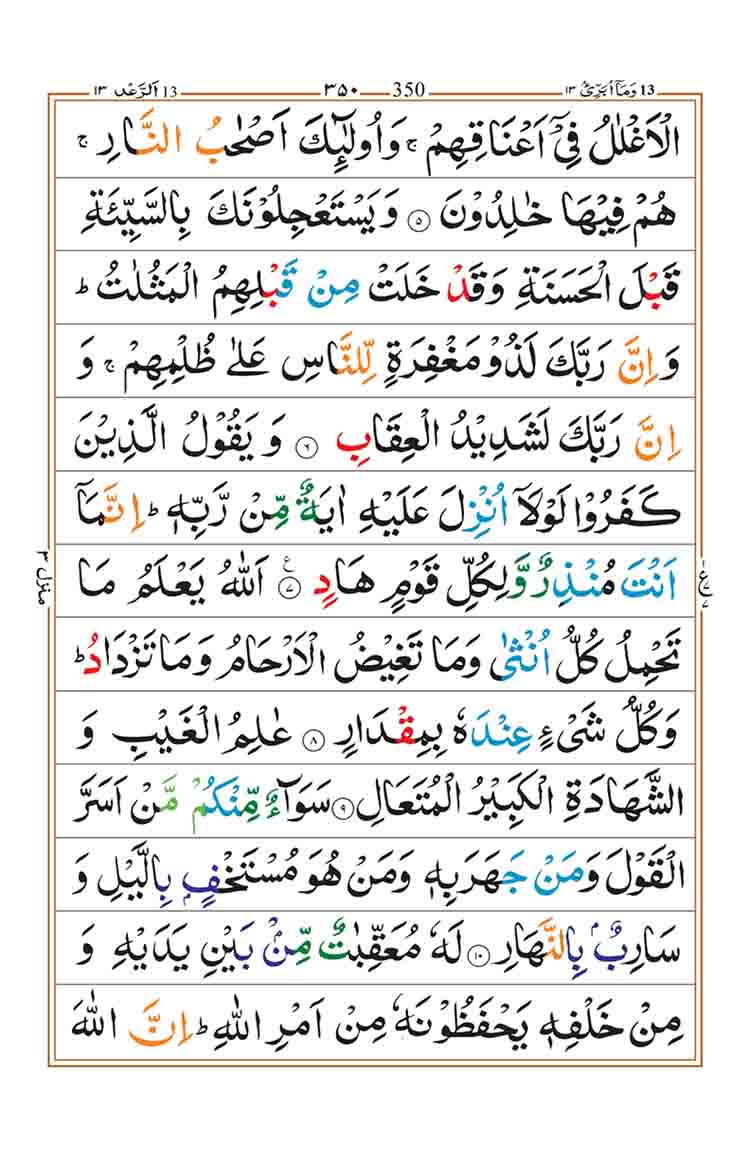 13 وَمَآ اُبَرِّئُ ١٣ 350 ٣٥٠ 13 اَلرَّعْد ١٣
الْاَغْلٰلُ فِیْۤ اَعْنَاقِهِمْ ۚ وَاُولٰٓئِكَ اَصْحٰبُ النَّارِ ۚ
هُمْ فِیْهَا خٰلِدُوْنَ ۝٥ وَیَسْتَعْجِلُوْنَكَ بِالسَّیِّئَةِ
قَبْلَ الْحَسَنَةِ وَقَدْ خَلَتْ مِنْ قَبْلِهِمُ الْمَثُلٰتُ ؕ
وَ اِنَّ رَبَّكَ لَذُوْ مَغْفِرَةٍ لِّلنَّاسِ عَلٰی ظُلْمِهِمْ ۚ وَ
اِنَّ رَبَّكَ لَشَدِیْدُ الْعِقَابِ ۝٦ وَ یَقُوْلُ الَّذِیْنَ
كَفَرُوْا لَوْلَاۤ اُنْزِلَ عَلَیْهِ اٰیَةٌ مِّنْ رَّبِّهٖ ؕ اِنَّمَاۤ
اَنْتَ مُنْذِرٌ وَّلِكُلِّ قَوْمٍ هَادٍ ۝٧ اَللّٰهُ یَعْلَمُ مَا
تَحْمِلُ كُلُّ اُنْثٰی وَمَا تَغِیْضُ الْاَرْحَامُ وَمَا تَزْدَادُ ؕ
وَكُلُّ شَیْءٍ عِنْدَهٗ بِمِقْدَارٍ ۝٨ عٰلِمُ الْغَیْبِ وَ
الشَّهَادَةِ الْكَبِیْرُ الْمُتَعَالِ ۝٩ سَوَآءٌ مِّنْكُمْ مَّنْ اَسَرَّ
الْقَوْلَ وَمَنْ جَهَرَ بِهٖ وَمَنْ هُوَ مُسْتَخْفٍۭ بِالَّیْلِ وَ
سَارِبٌۢ بِالنَّهَارِ ۝١٠ لَهٗ مُعَقِّبٰتٌ مِّنْۢ بَیْنِ یَدَیْهِ وَ
مِنْ خَلْفِهٖ یَحْفَظُوْنَهٗ مِنْ اَمْرِ اللّٰهِ ؕ اِنَّ اللّٰهَ
منزل ٣